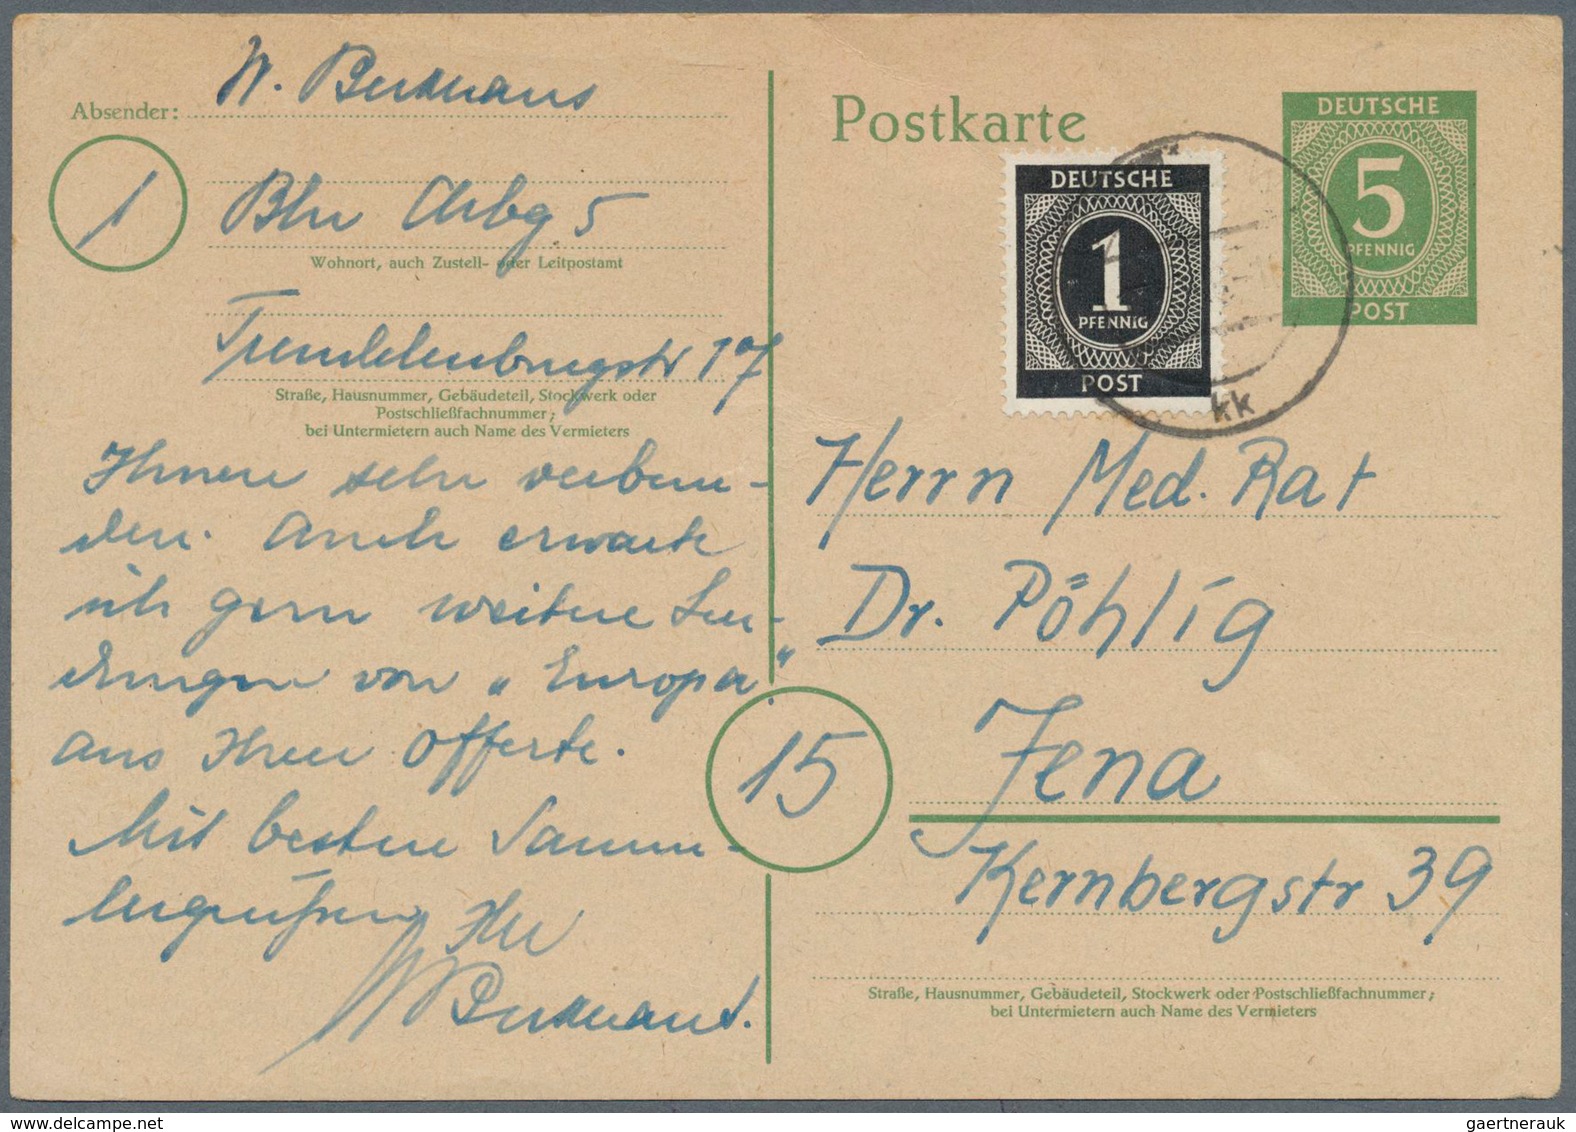 Absender: W. Beckmans
1
Bln Chbg 5
Wohnort, auch Zustell- oder Leitpostamt
Trendelenburgstr 17
Straße, Hausnummer, Gebäudeteil, Stockwerk oder
Postschließfachnummer;
bei Untermietern auch Name des Vermieters
Ihnen sehr verbun-
den. Auch erwarte
ich gern weitere Sen-
dungen von „Europa"
aus Ihrer Offerte.
Mit besten Samm-
lergrüßen Ihr
Postkarte
DEUTSCHE
5
PFENNIG
POST
DEUTSCHE
1
PFENNIG
POST
kk
Herrn Med. Rat
Dr. Pöhlig
15
Jena
Kernbergstr 39
Straße, Hausnummer, Gebäudeteil, Stockwerk oder Postschließfachnummer;
bei Untermietern auch Name des Vermieters
gaertnerauk @ delcampe.net